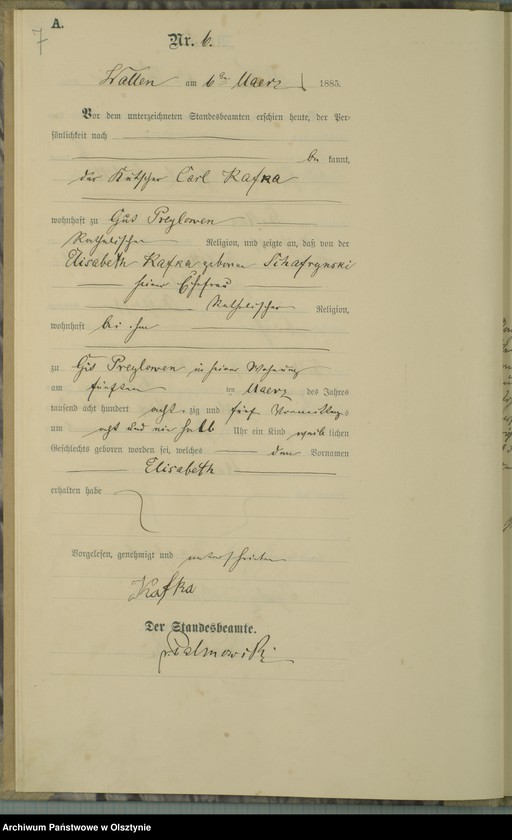 A.
7
Nr. 6.
Wallen am 6ten Maerz 1885.
Vor dem unterzeichneten Standesbeamten erschien heute, der Per-
sönlichkeit nach
be kannt,
der Kutscher Carl Kafka
wohnhaft zu Gut Preylowen
Katholischer Religion, und zeigte an, daß von der
Elisabeth Kafka geboren
seiner Ehefrau
Katholischer Religion,
wohnhaft bei ihm
zu Gut Preylowen in seiner Wohnung
am fünften ten Maerz des Jahres
tausend acht hundert acht zig und fünf Vormittags
um acht und ein halb Uhr ein Kind weib lichen
Geschlechts geboren worden sei, welches den Vornamen
Elisabeth
erhalten habe
Vorgelesen, genehmigt und unterschrieben
Kafka
Der Standesbeamte.
Archiwum Państwowe w Olsztynie